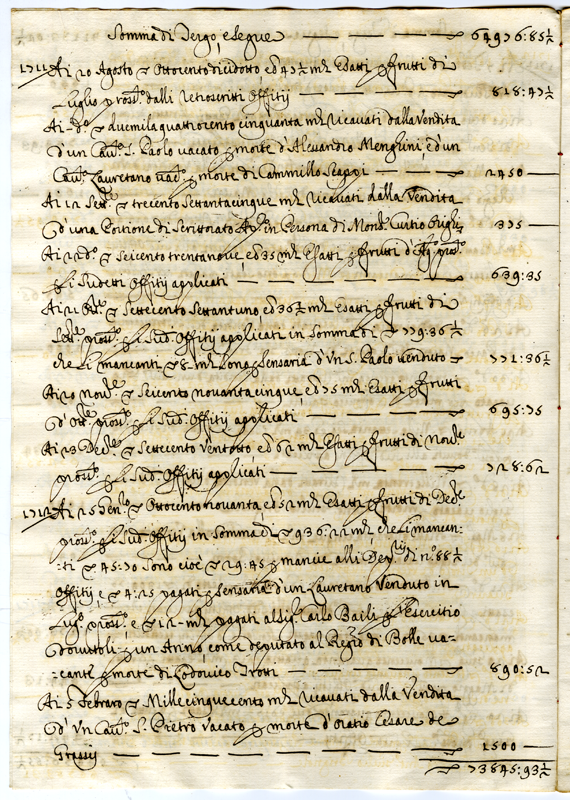 Somma di Tergo, e segue — — — 64976:85½
1711 Ai 20 Agosto ▽ Ottocento dicidotto ed 47½ mta Esatti p frutti di
Luglio pross.º dalli retroscritti Offitij — 818:47½
Ai d.º ▽ duemila quattrocento cinquanta mta ricavati dalla Vendita
d'un Cau.to S. Paolo vacato p morte d'Alessandro Menghini, e d'un
Cau.to Lauretano vac.º p morte di Cammillo — 2450 —
Ai 12 Sett.re ▽ trecento settantacinque mta ricavati dalla Vendita
d'una Portione di Scrittorato in Persona di Mons.r Curtio — 375 —
Ai d.º ▽ Seicento trentanove, ed 35 mta Esatti p frutti d'Ag.º pross.º
p li sudetti Offitij applicati — — — 639:35
Ai 21 ▽ Settecento Settantuno ed 36½ mta Esatti p frutti di
Sett.re pross.º p li Sud.i Offitij applicati in Somma di ▽ 779:36½
che li mancanti ▽ 8 mta sono p Sensaria d'Un S. Paolo venduto — 771:36½
Ai 20 Nov.re ▽ Seicento novantacinque ed 75 mta Esatti p frutti
d'Ott.re pross.º p li Sud.i Offitij applicati — 695:75
Ai 23 Dec.re ▽ Settecento Ventotto ed 62 mta Esatti p frutti di Nov.re
pross.º p li Sud.i Offitij applicati — — — 728:62
1712 Ai 25 Gen.ro ▽ Ottocento novanta ed 52 mta Esatti p frutti di Dec.re
pross.º p li Sud.i Offitij in Somma di ▽ 936:22 mta che li mancan:
:ti ▽ 45:70 sono cioè ▽ 29:45 p mancie alli di n.º 88½
Offitij e ▽ 4:25 pagati p sensaria d'un Lauretano Venduto in
Lug.º pross.º, e ▽ 12 mta pagati al Sig.r Carlo Baili p l'esercitio
dovutoli p un Anno come deputato al Regio di Bolle va-
cante p morte di Lodovico Trotti — — — 890:52
Ai 5 Febraro ▽ Mille cinquecento mta ricavati dalla Vendita
d'Un Cau.to S. Pietro vacato p morte d'Oratio Cesare de
Grassij — — — 1500 —
▽ 73845:93½